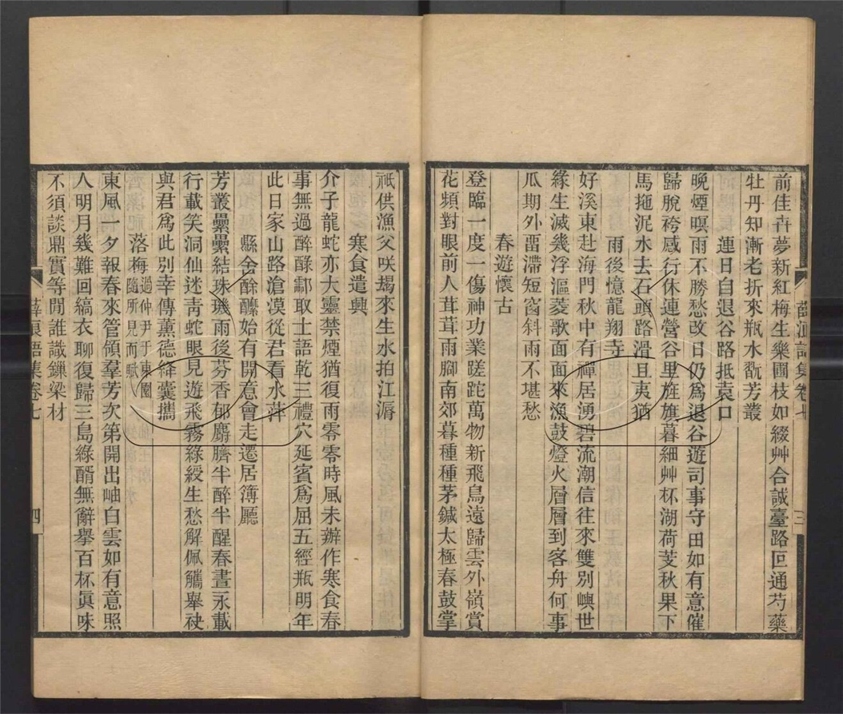 前佳卉夢新紅梅生樂圃枝如綴艸合誠臺路回通芍藥
牡丹知漸老折來瓶水翫芳叢
連日自退谷路抵袁口
晚煙暝雨不勝愁改日仍爲退谷遊司事守田如有意催
歸脫袴感行休連營谷里旌旗暮細艸杯湖荷芰秋果下
馬拖泥水去石頭路滑且夷猶
雨後憶龍翔寺
好溪東赴海門秋中有禪居湧碧流潮信往來雙別嶼世
緣生滅幾浮漚菱歌面面來漁鼓燈火層層到客舟何事
瓜期外畱滯短窗斜雨不堪愁
春遊懷古
登臨一度一傷神功業蹉跎萬物新飛鳥遠歸雲外嶺賞
花頻對眼前人茸茸雨腳南郊暮種種茅鍼太極春鼓掌
祇供漁父咲朅來生水拍江漘
寒食遣興
介子龍蛇亦大靈禁煙猶復雨零零時風未辦作寒食春
事無過醉醁酃取士語乾三禮穴延賓爲屈五經瓶明年
此日家山路滄漠從君看水萍
縣舍酴醾始有開意會走還居簿廳
芳叢纍纍結珠璣雨後芬香郁麝臍半醉半醒春晝永載
行載笑洞仙迷青蛇眼見遊飛霧綠綬生愁解佩觿舉袂
與君爲此別幸傳薰德絳囊攜
落梅過仲尹于東園隨所見而賦
東風一夕報春來管領羣芳次第開出岫白雲如有意照
人明月幾難回縞衣聊復歸三島綠醑無辭舉百杯眞味
不須談鼎實等閒誰識鏁梁材
語集卷七
四
三